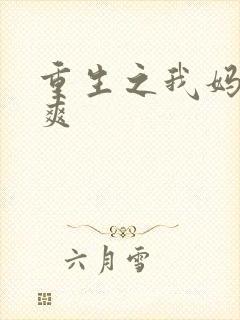 重生之我妈
爽
六月雪